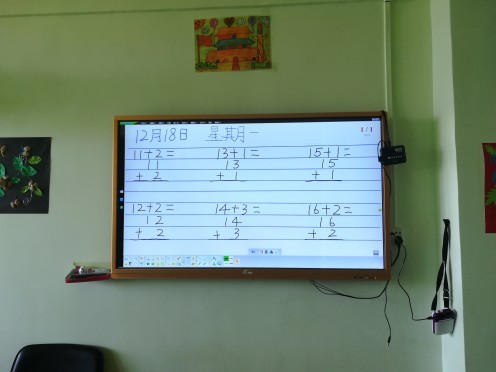 12月18日 星期一
1/1
11+2= 13+1= 15+1=
11 13 15
+ 2 + 1 + 1
12+2= 14+3= 16+2=
12 14 16
+ 2 + 3 + 2